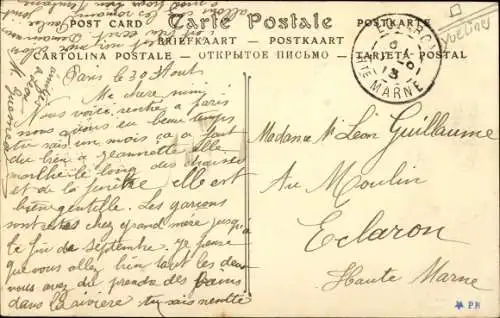 Carte Postale
POST CARD
POSTKARTE
BRIEFKAART — POSTKAART
CARTOLINA POSTALE — ОТКРЫТОЕ ПИСЬМО — TARJETA POSTAL
ECLARON
Hte MARNE
Yvelines
Paris le 30 Aout
Ma chere mimi
Nous voici rentré a paris
nous avons eu beau temps
tu sais un mois ça a fait
du bien a Jeannette elle
marche le long des chaises
et de la fenêtre elle est
bien gentille. Les garçons
sont chez grand mère jusqu'a
la fin de septembre. Je pense
que vous allez bien tout les deux
vous avez du prendre des bains
dans la rivière tu sais
Madame Vve Léon Guillaume
Au Moulin
Eclaron
Haute Marne
PR